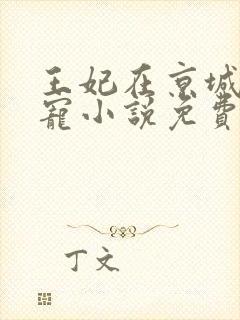 王妃在京城
寵小說免費
丁文